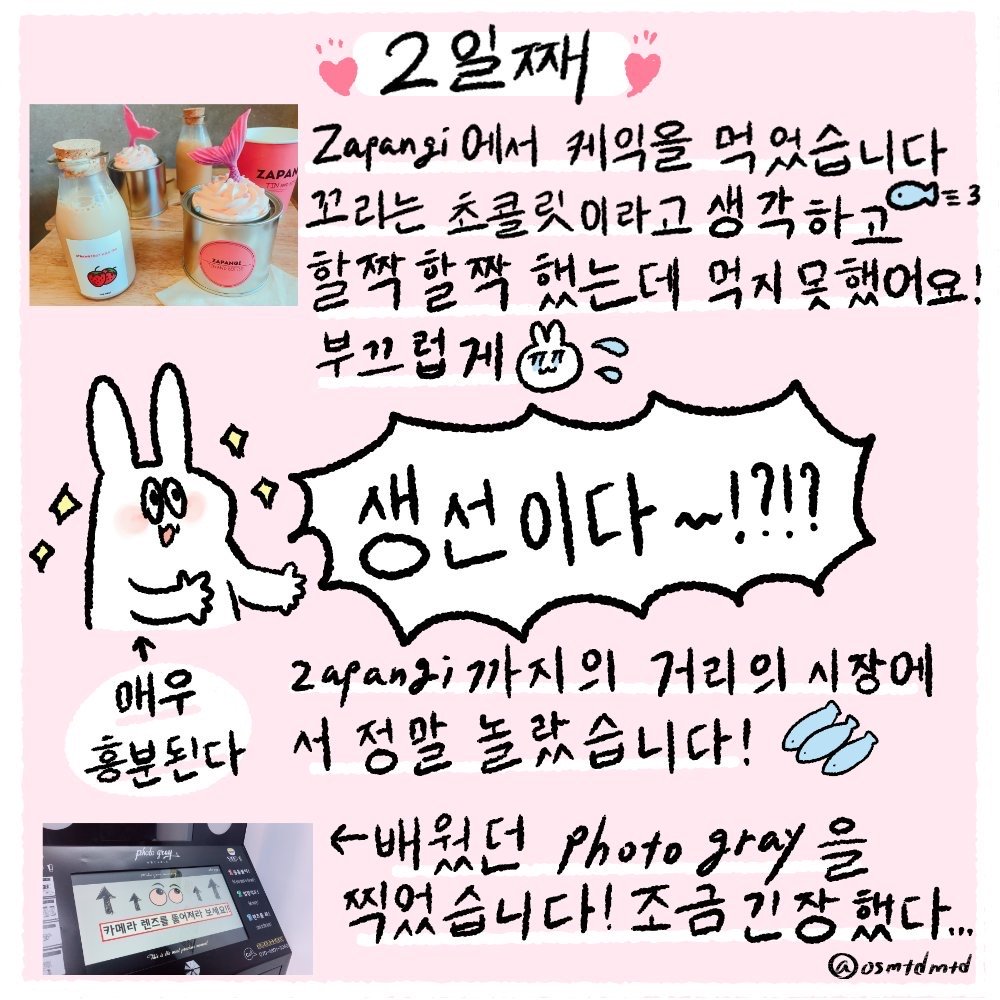 2일째
Zapangi에서 케익을 먹었습니다
꼬리는 초콜릿이라고 생각하고
할짝할짝 했는데 먹지못했어요!
부끄럽게
ZAPANGI
ZAPANGI
생선이다~!?!?
매우
흥분된다
zapangi까지의 거리의 시장에
서 정말 놀랐습니다!
←배웠던 photo gray을
찍었습니다! 조금긴장했다...
photo gray
카메라 렌즈를 뚫어져라 보세요!!
@osmtdmtd